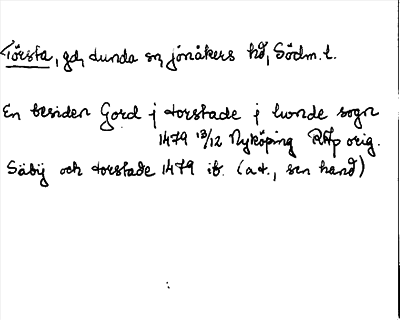 Törsta, gd, Lunda sn, Jönåkers hd, Södm. l.
En besiden Gord j torstade j lunde sogn
1479 13/12 Nyköping RAp orig.
Säby och torstade 1479 ib. (a.t., sen hand)